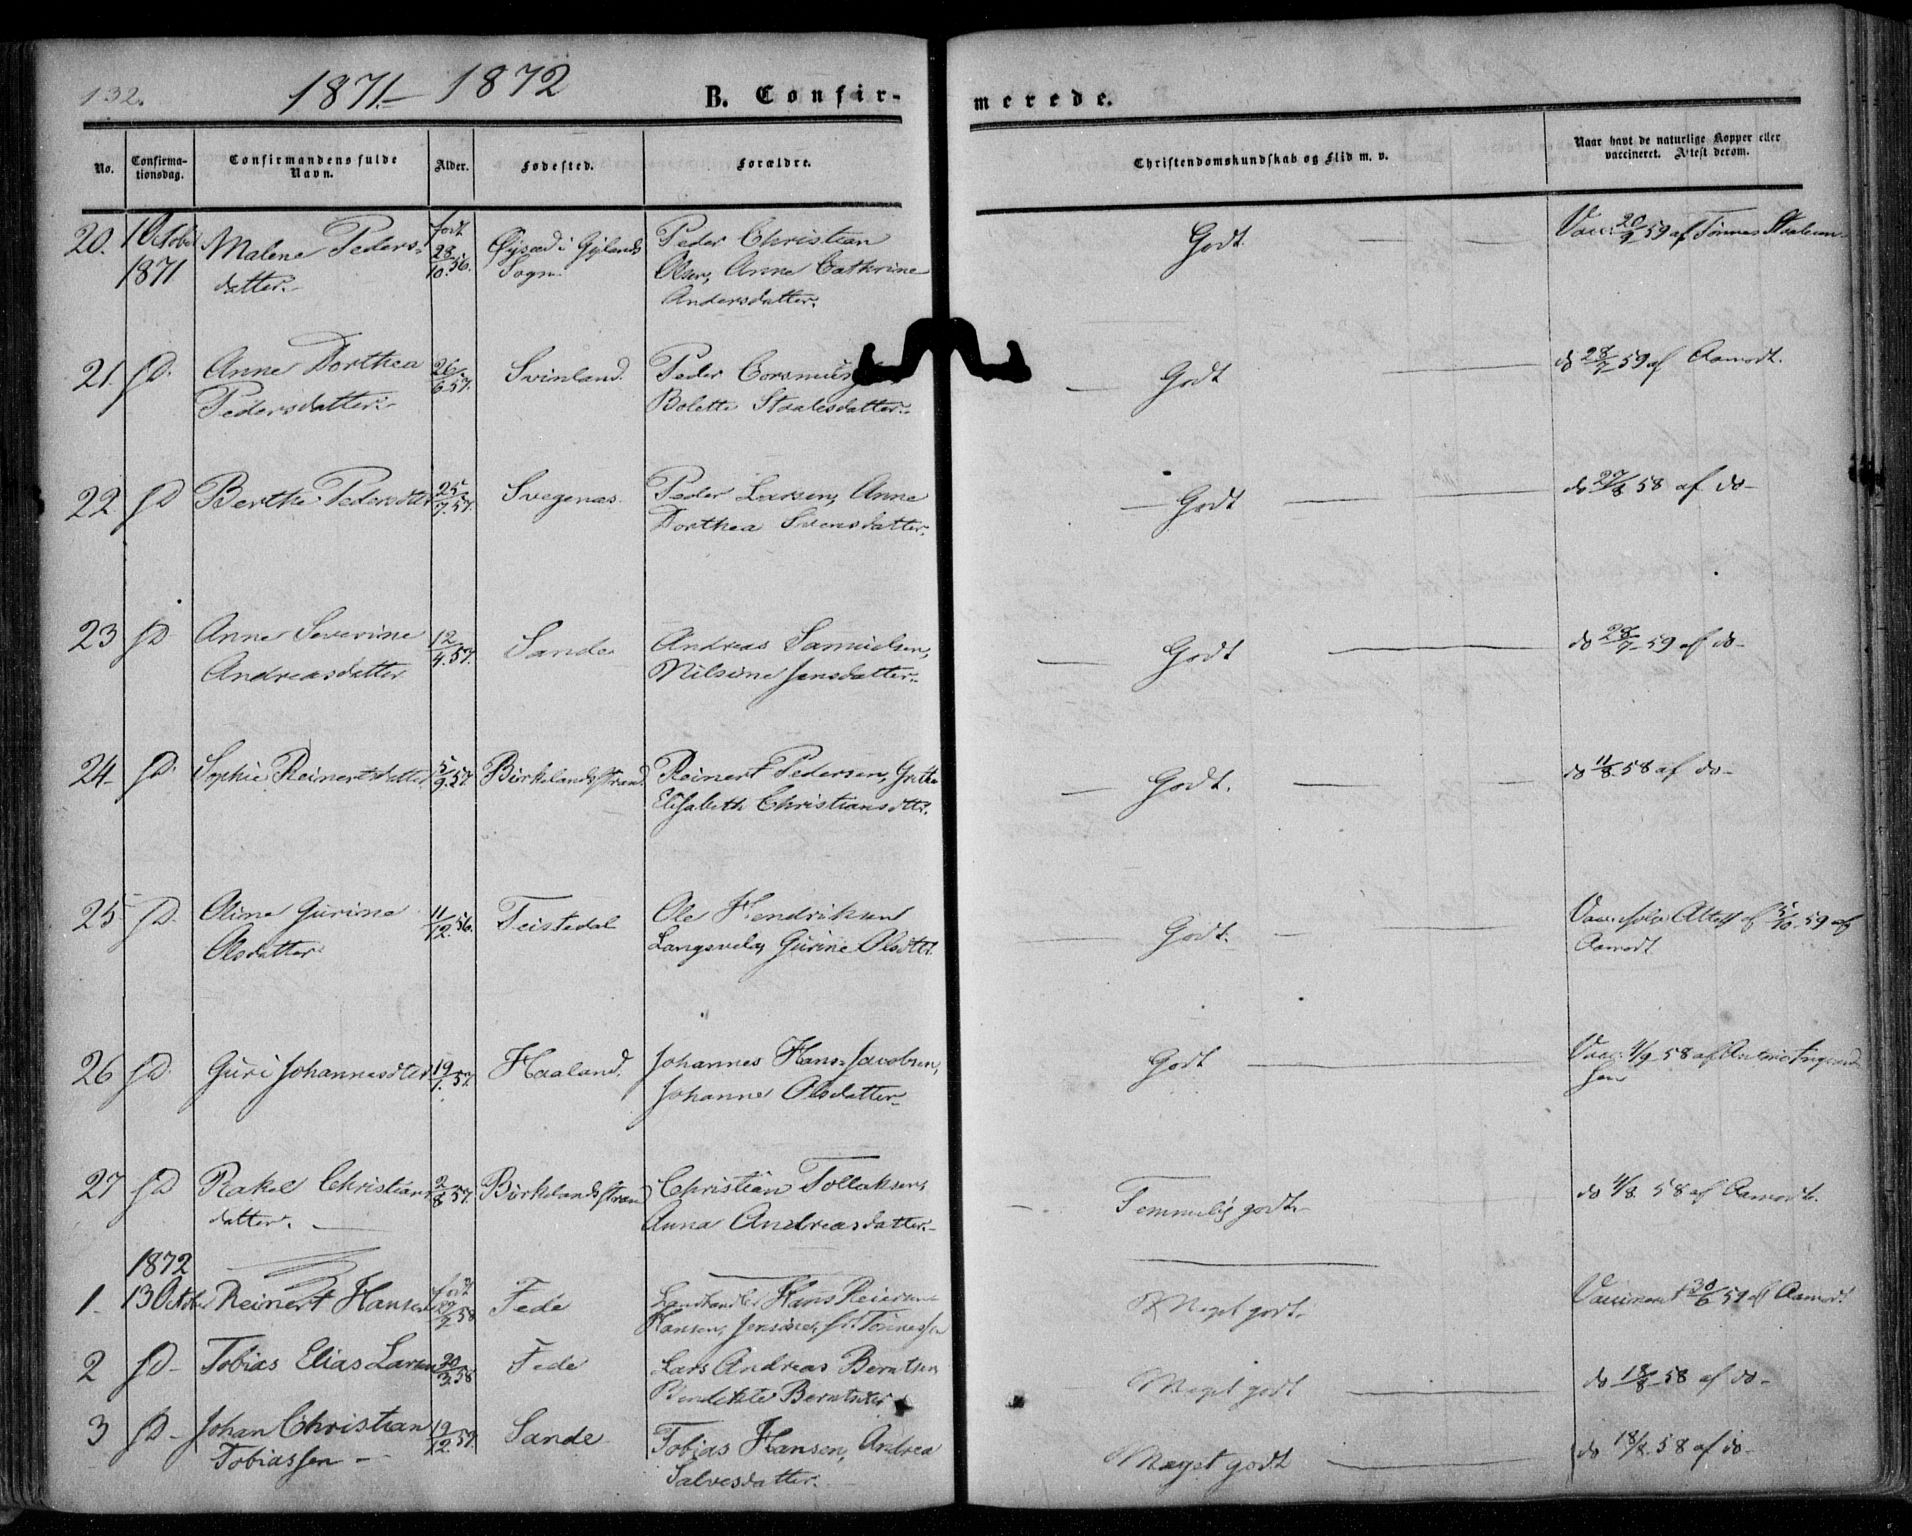 132.
1871 – 1872
B. Confir-
merede.
No.
Confirma-
tionsdag.
Confirmandens fulde
Navn.
Alder.
Fødested.
Forældre.
Christendomskundskab og Flid m. v.
Naar havt de naturlige Kopper eller
vaccineret. Attest derom.
20. 1 October Malene Peders- født Peder Christian Godt. Vacc. 20/9 59 af Tønnes
1871 datter. 28/10 56. i Gylands Sogn. Anne Cathrine
Andersdatter.
21. sD. Anne Dorthea 26/6 57. Svinland. Peder Godt do 28/7 59 af Aamodt.
Pedersdatter. Bolette Staalesdatter.
22. sD Berthe Pedersdter 25/7 57. Svegenæs. Peder Larsen, Anne Godt do 27/8 58 af do-
Dorthea Svensdatter.
23 sD Anne Severine 12/4 57. Sande Andreas Samuelsen, Godt do 28/7 59 af do-
Andreasdatter Nilsine Jensdatter.
24 sD. Sophie Reinertsdatter 5/9 57. Birkelandsstrand. Reinert Pedersen, Gitte Godt. do 11/8. 58 af do-
Elisabeth Christiansdtr.
25 sD. Oline Gurine 11/12 56. Teistedal Ole Hendriksen Godt. Vacc. Attest af 5/10. 59 af
Olsdatter. Gurine Olsdtr. Aamodt.
26 sD. Guri Johannesdter 19/1. 57. Haaland. Johannes Hans Jacobsen, Godt Vacc. 4/9 58 af
Johanne Olsdatter. sen
27 sD Rakel Christians 2/8 57. Birkelandsstrand Christian Tollaksen, Temmelig godt. do 4/8. 58 af Aamodt.
datter. Anna Andreasdatter.
1872
1. 13 October Reinert Hansen født Fede Landhandler Hans Reiersen Meget godt. Vaccineret 30/6 59 af Aamodt
Hansen, Jensine, f. Tønnessen
2 sD- Tobias Elias Larsen 20/3 58 Fede Lars Andreas Berntsen Meget godt do 18/8 58 af do-
Bendikte Berntsdter
3 sD- Johan Christian 19/12 57. Sande Tobias Hansen, Andrea Meget godt do 18/8. 58 af do-
Tobiassen – Salvesdatter.